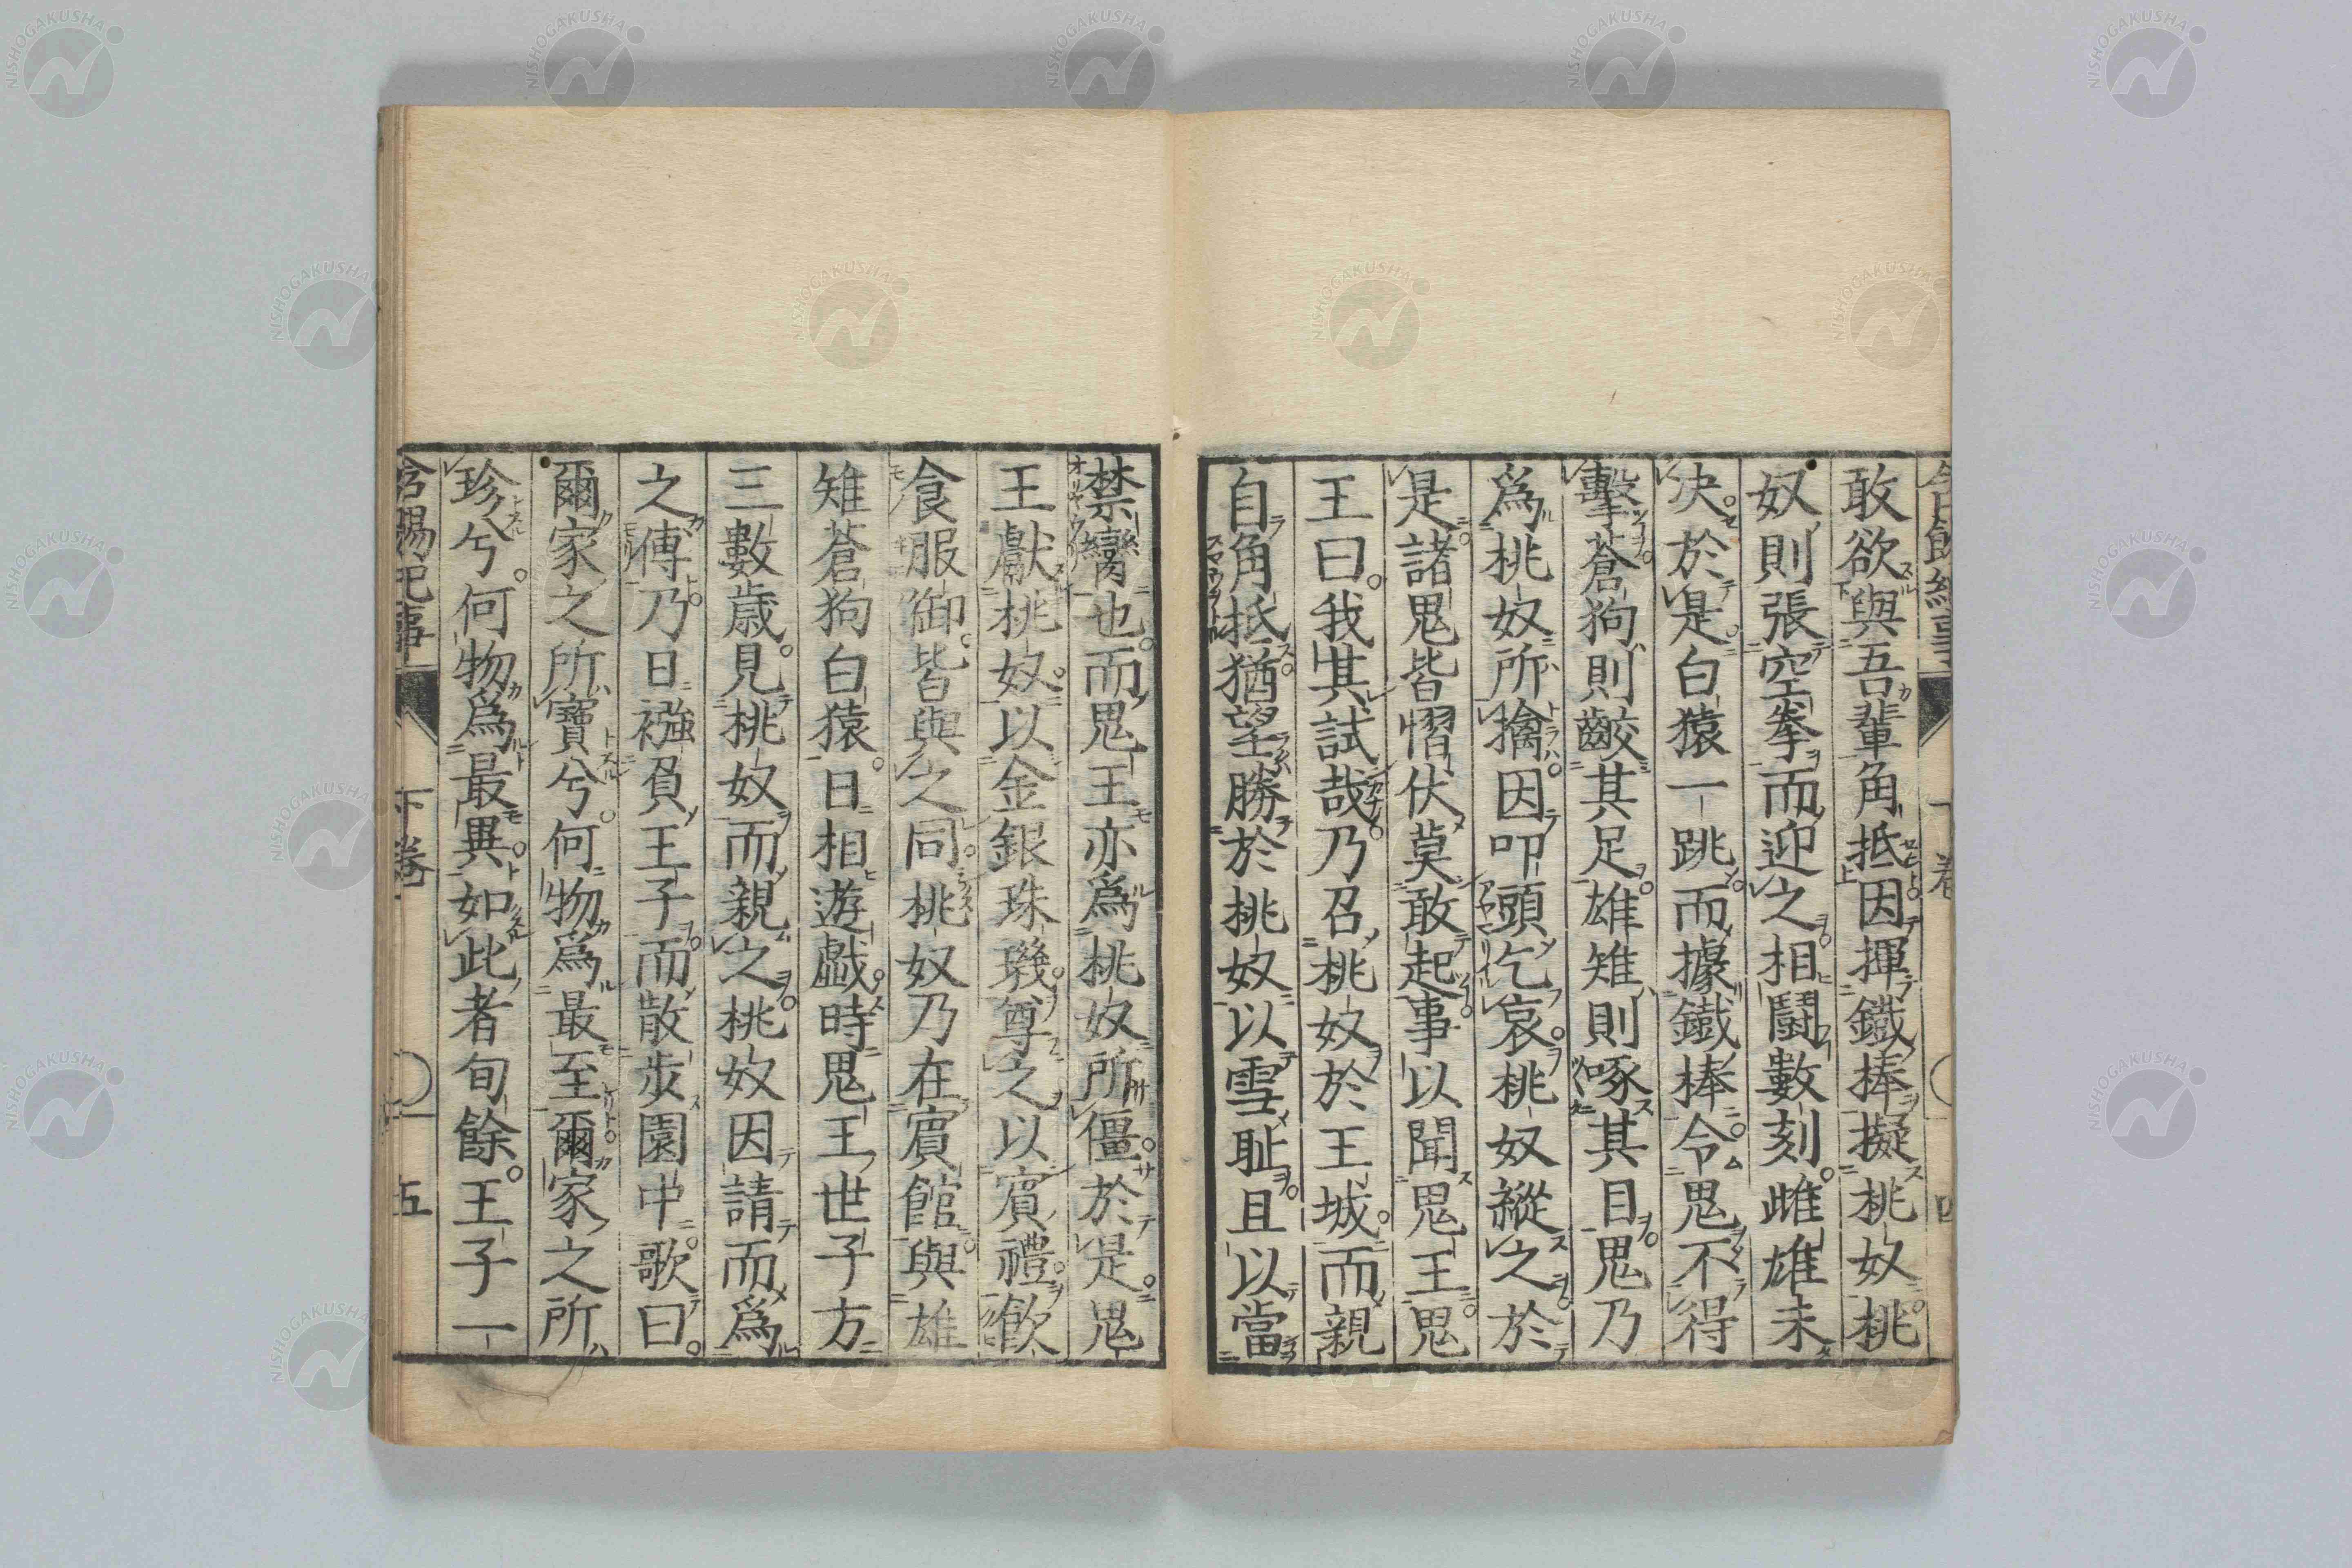 敢欲與吾輩角抵因揮鐵棒擬桃奴桃
奴則張空拳而迎之相鬪數刻雌雄未
决於是白猿一跳而據鐵棒令鬼不得
擊蒼狗則齩其足雄雉則啄其目鬼乃
爲桃奴所擒因叩頭乞哀桃奴縱之於
是諸鬼皆慴伏莫敢起事以聞鬼王鬼
王曰我其試哉乃召桃奴於王城而親
自角抵猶望勝於桃奴以雪耻且以當
禁臠也而鬼王亦爲桃奴所僵於是鬼
王獻桃奴以金銀珠璣尊之以賓禮飲
食服御皆與之同桃奴乃在賓館與雄
雉蒼狗白猿日相遊戯時鬼王世子方
三數歳見桃奴而親之桃奴因請而爲
之傅乃日襁負王子而散步園中歌曰
爾家之所寶兮何物爲最至爾家之所
珍兮何物爲最異如此者旬餘王子一
下卷
五
NISHOGAKUSHA